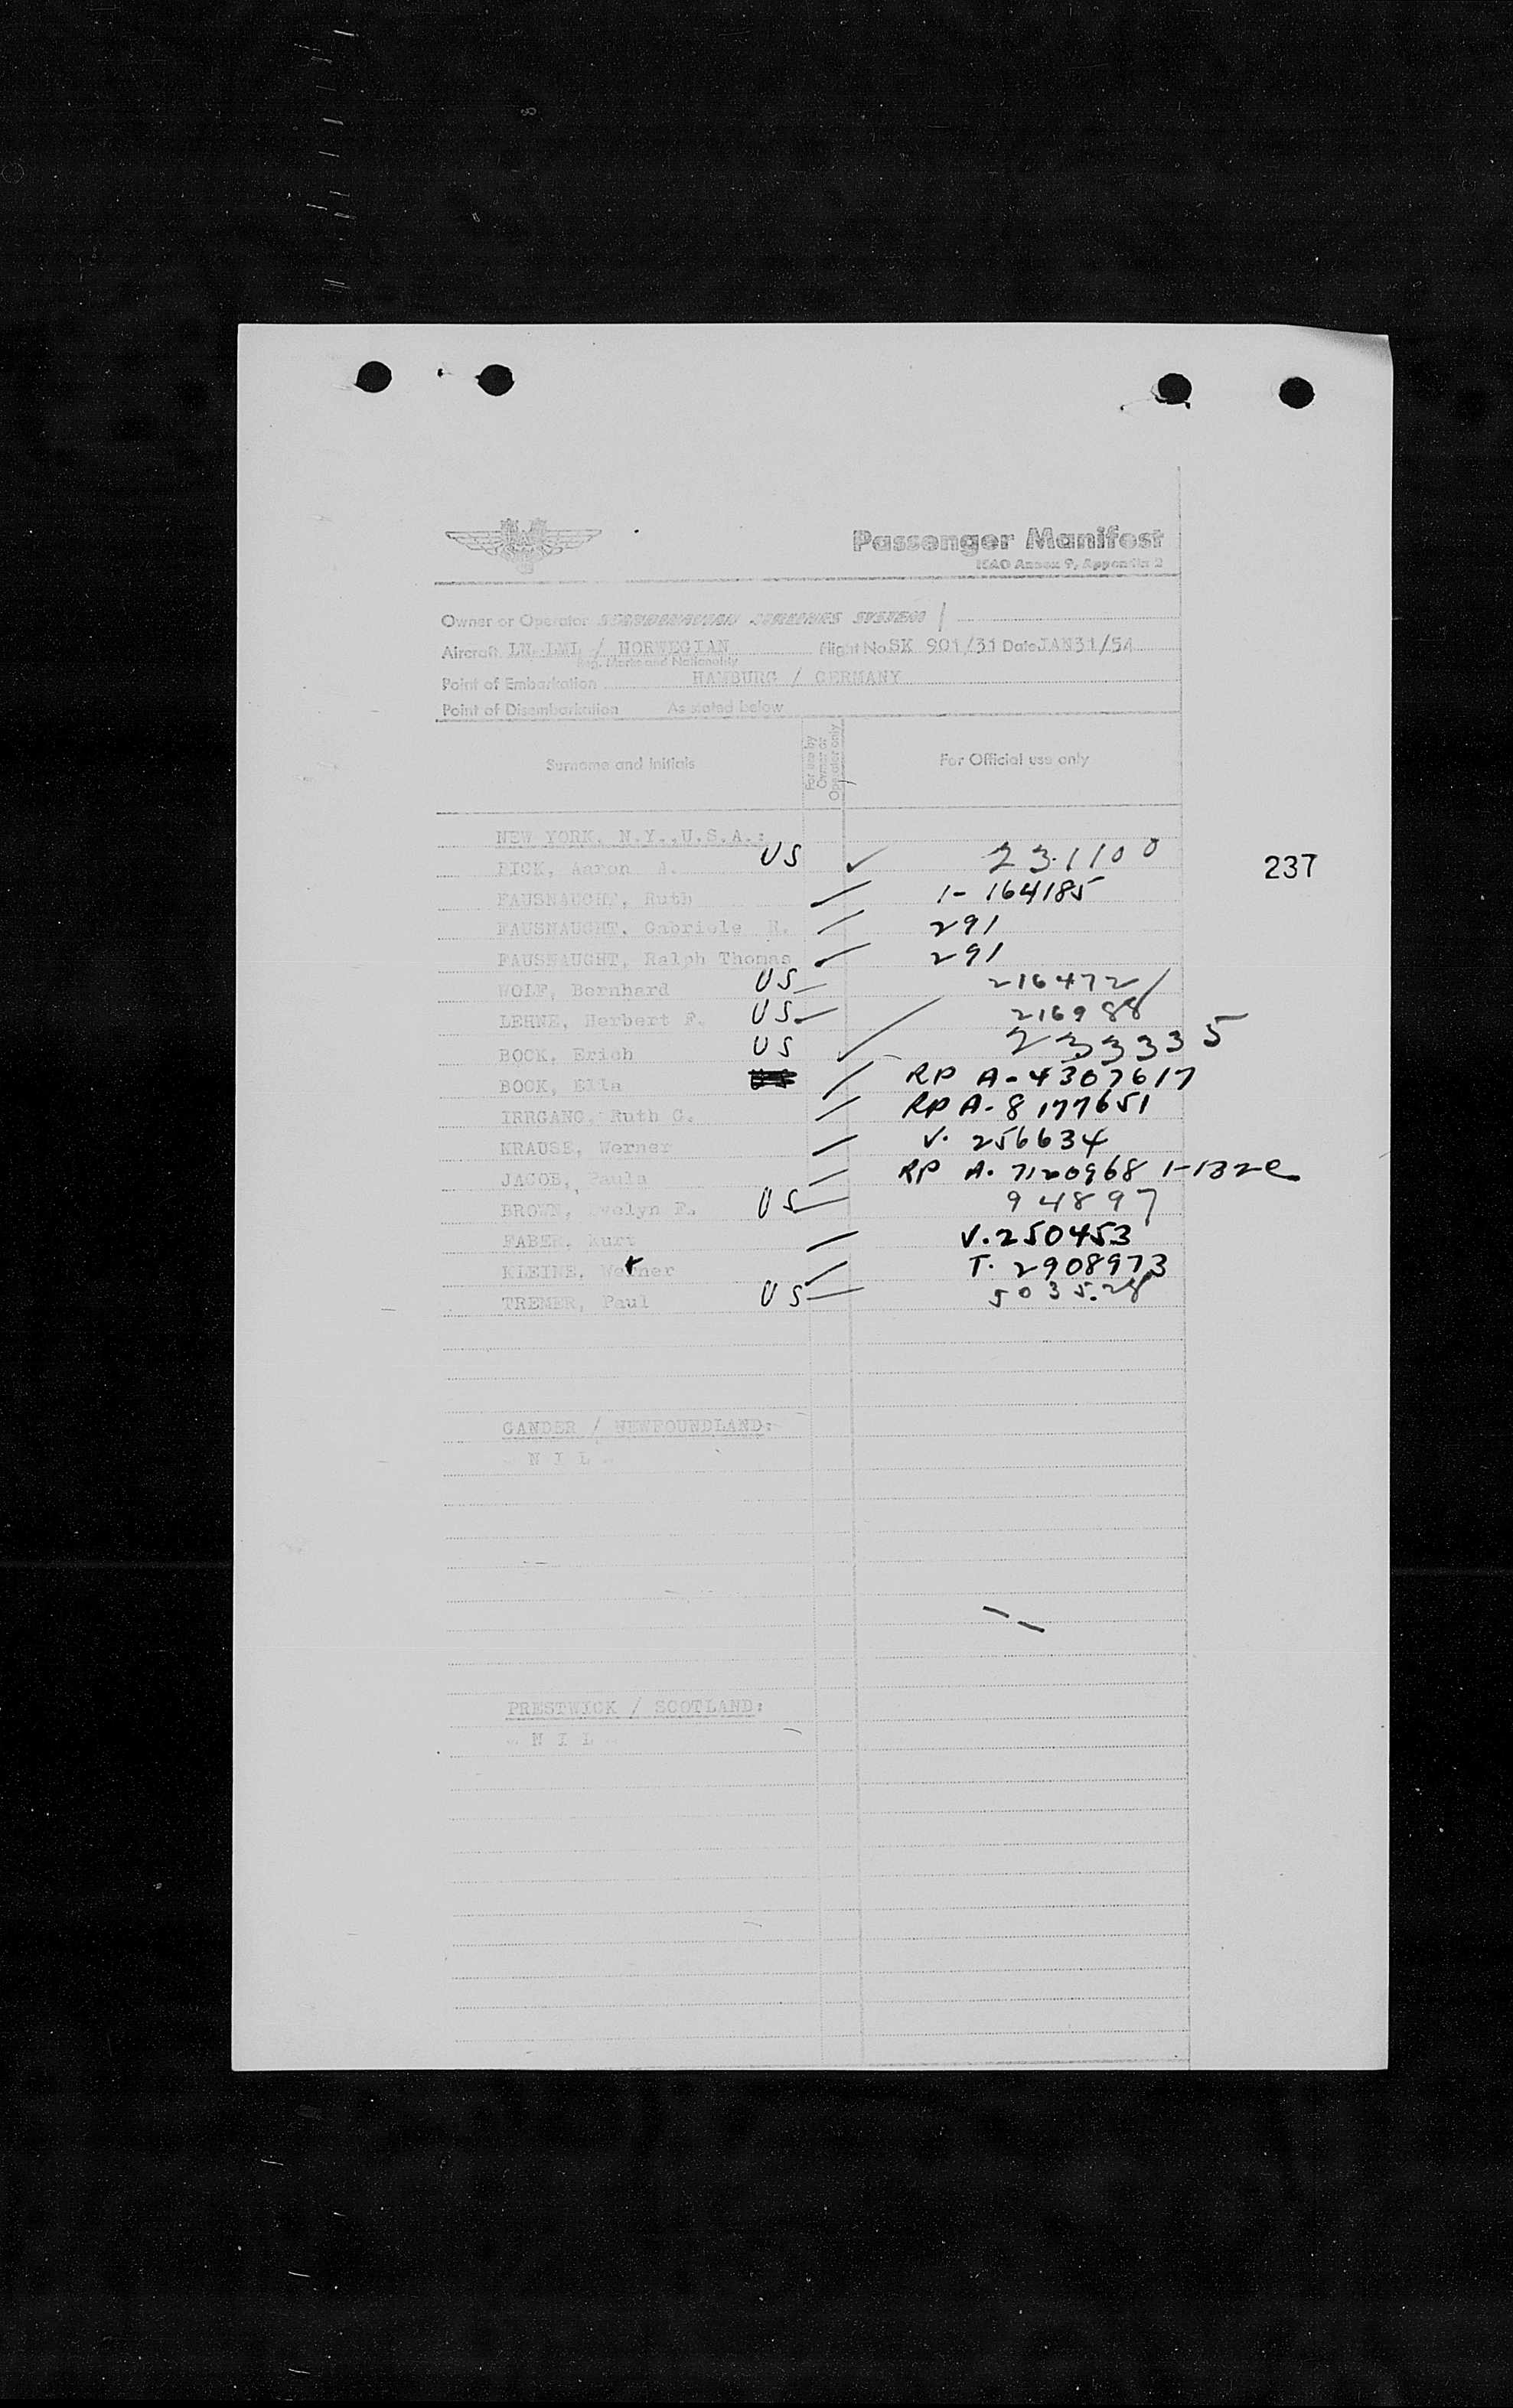 Passenger Manifest
ICAO Annex 9, Appendix 2
Owner or Operator SCANDINAVIAN AIRLINES SYSTEM
Aircraft LN-LML / NORWEGIAN Flight No. SK 901/31 Date JAN31/54
Reg. Marks and Nationality
Point of Embarkation HAMBURG / GERMANY
Point of Disembarkation As stated below
Surname and initials For use by Owner or Operator only For Official use only
NEW YORK, N.Y.,U.S.A.:
Aaron US ✓ 231100
237
FAUSNAUGHT, Ruth 1-164185
FAUSNAUGHT, Gabriele 291
FAUSNAUGHT, Ralph Thomas 291
WOLF, Bernhard US 216472
LEHNE, Herbert F. US 216988
BOCK, Erich US 233335
BOCK, Ella RP A-4307617
IRRGANG, Ruth C. RP A-8177651
KRAUSE, Werner V. 256634
JACOB, Paula RP A. 7120968
BROWN, Evelyn F. US 94897
FABER, Kurt V.250453
KLEINE, Werner T. 2908973
TREMER, Paul US 503528
GANDER / NEWFOUNDLAND:
- N I L -
PRESTWICK / SCOTLAND:
- N I L -